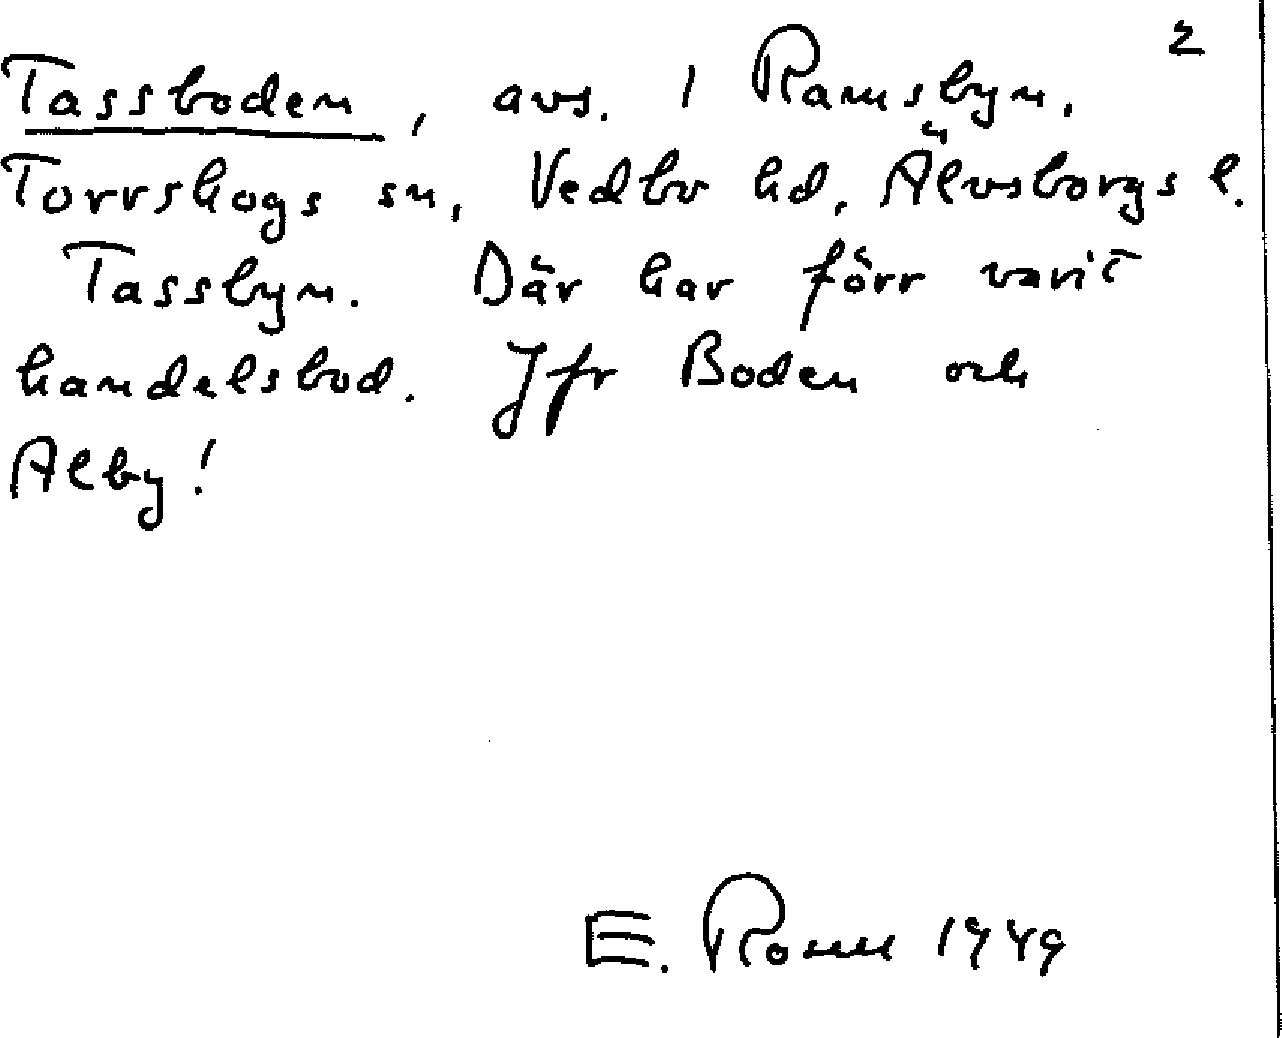 2
Tassboden, avs. i Ramsbyn,
Torrskogs sn, Vedbo hd, Älvsborgs l.
Tassbyn. Där har förr varit
handelsbod. Jfr Boden och
Alby!
E. 1949